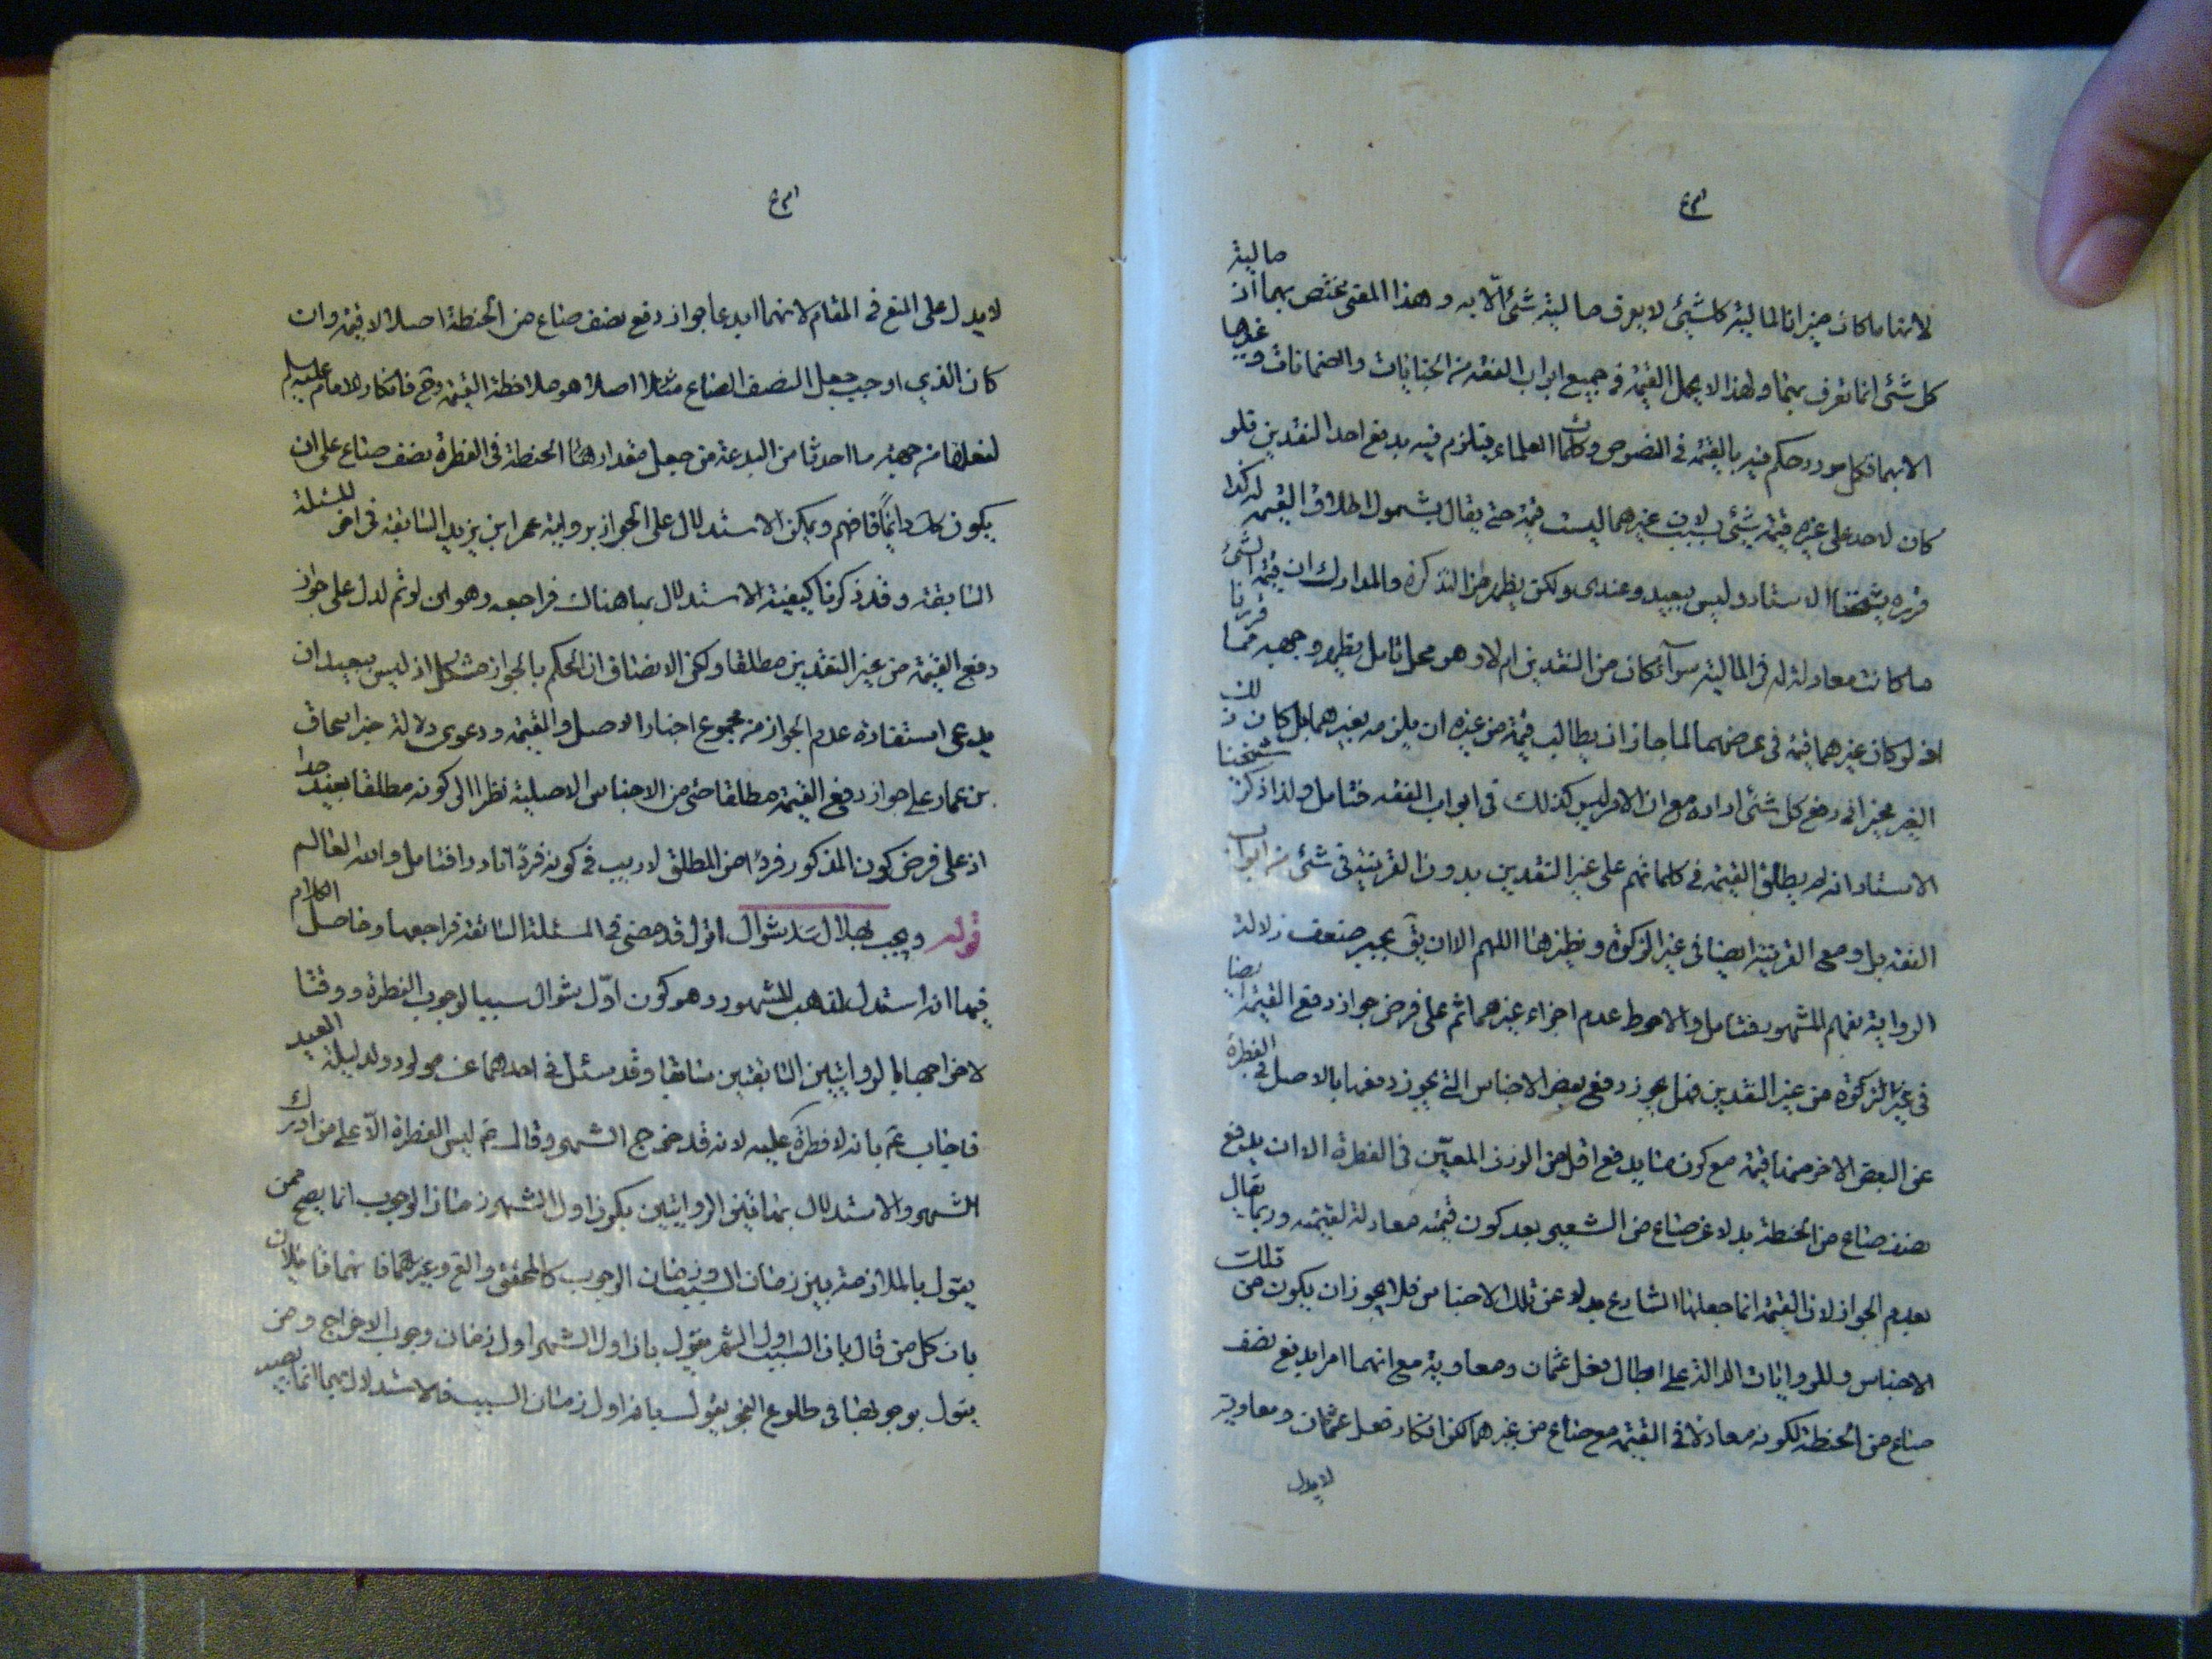 لانهما ما كان ميزانا لمالية كل شئ لا يعرف مالية شئ الّا به و هذا المعنى يختص بهما اذ مالية
كل شئ انما تعرف بهما ولهذا لا يحمل القيمة فى جميع ابواب الفقه من الجنايات والضمانات وغيرها
الا بهما فكل مورد حكم فيه بالقيمة فى النصوص وكلمات العلماء فيلزم فيه بدفع احد النقدين فلو
كان لاحد على غيره قيمة شئ لان غيرهما ليست قيمة حتى يقال بشمول اطلاق القيمة له كذا
قرره شيخنا الاستاد وليس ببعيد وعندى ولكن يظهر من التذكرة والمدارك ان قيمة الشئ
ما كانت معادلة له فى المالية سواء كان من النقدين ام لا وهو محل تامل يظهر وجهه مما قررنا
اذ لو كان غيرهما قيمة فى عرضهما لما جاز ان يطالب قيمة من غيره ان يلزمه بغيرهما بل كان ذلك
الغير مخيرا فى دفع كل شئ اراده مع ان الامر ليس كذلك فى ابواب الفقه فتامل ولذا ذكر شيخنا
الاستاد انه لم يطلق القيمة فى كلماتهم على غير النقدين بدون القرينة فى شئ من ابواب
الفقه بل ومع القرينة ايضا فى غير الزكوة ونظيرها اللهم الا ان يق بجبر ضعف دلالة
الرواية بفهم المشهور فتامل والاحوط عدم اجزاء غيرهما ثم على فرض جواز دفع القيمة ايضا
فى غير الزكوة من غير النقدين فهل يجوز دفع بعض الاجناس التى يجوز دفعها بالاصل فى الفطرة
عن البعض الاخر منها قيمة مع كون ما يدفع اقل من الوزن المعيّن فى الفطرة الا ان يدفع
نصف صاع من الحنطة بدلا عن صاع من الشعير بعد كون قيمته معادلة لقيمته وربما يقال
بعدم الجواز لان القيمة انما جعلها الشارع بدلا عن تلك الاجناس فلا يجوز ان يكون من تلك
الاجناس وللروايات الدالة على ابطال فعل عثمان ومعاوية مع انهما امرا بدفع نصف
صاع من الحنطة لكونه معادلا فى القيمة مع صاع من غيرها لكن انكار فعل عثمان ومعاوية
لا يدل
لا يدل على المنع فى المقام لانهما ابدعا جواز دفع نصف صاع من الحنطة اصلا لا قيمة وان
كان الذى اوجب جعل النصف الصاع مثلا اصلا هو ملاحظة القيمة وح فانكار الامام عليه السلم
لفعلهما من جهة ما احدثا من البدعة من جعل مقدار الحنطة فى الفطرة نصف صاع على ان
يكون دائمًا فافهم ويمكن الاستدلال على الجواز برواية عمر ابن يزيد السابقة فى اخر المسئلة
السابقة وقد ذكرنا كيفية الاستدلال بها هناك فراجعه وهو ان لو تم لدل على جواز
دفع القيمة من غير النقدين مطلقا ولكن الانصاف ان الحكم بالجواز مشكل اذ ليس ببعيد ان
يدعى استفادة عدم الجواز من مجموع اخبار الاصل والقيمة ودعوى دلالة خبر اسحاق
بن عمار على جواز دفع القيمة مطلقا حتى من الاجناس الاصلية نظرا الى كونه مطلقا بعيد جدا
اذ على فرض كون المذكور فردًا من المطلق لا ريب فى كونه فردًا نادرا فتامل والله العالم
قوله ويجب بهلال شوال اقول قد مضى فى المسئلة السابقة فراجعها وحاصل الكلام
فيها انه استدل لمذهب المشهور وهو كون اوّل شوال سببا لوجوب الفطرة ووقتا
لاخراجها بالروايتين السابقتين سابقا وقد سئل فى احدهما عن مولود ولد ليلة العيد
فاجاب ع بانه لا فطرة عليه لانه قد خرج الشهر وقال ع ليس الفطرة الّا على من ادرك
الشهر والاستدلال بهاتين الروايتين بكون اول الشهر زمان الوجوب انما يصح ممن
يقول بالملازمة بين زمان السبب وزمان الوجوب كالمحقق وغيرهما فانهما قايلان
بان كل من قال بان السبب اول الشهر يقول بان اول الشهر اول زمان وجوب الاخراج ومن
يقول بوجوبها فى طلوع الفجر يقول بانه اول زمان السبب فالاستدلال بهما انما يفيد